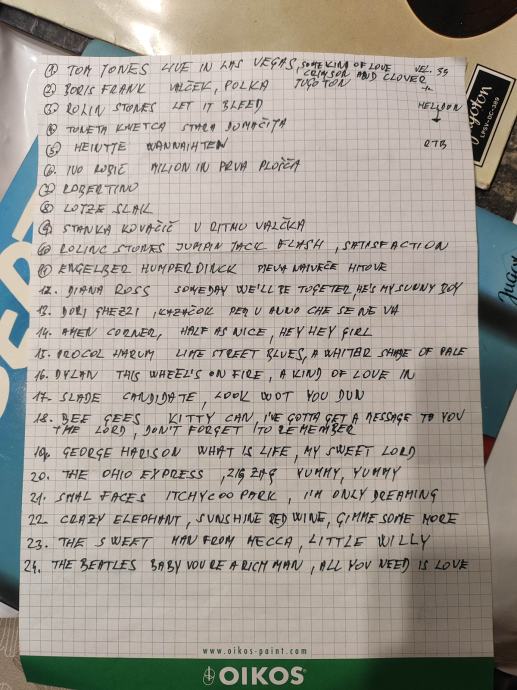 ① TOM JONES LIVE IN LAS VEGAS, SOME KIND OF LOVE VEL. 39
CRIMSON AND CLOVER
② BORIS FRANK VALČEK, POLKA JUGOTON
③ ROLIN STONES LET IT BLEED HELIDON
④ TONETA KMETCA STARA DOMAČIJA
⑤ HEINTJE WANNAIHTEN RTB
⑥ IVO ROBIČ MILION IN PRVA PLOŠČA
⑦ ROBERTINO
⑧ LOTZE SLAIL
⑨ STANKA KOVAČIČ U RITMU VALČKA
⑩ ROLING STONES JUMPIN JACK FLASH, SATISFACTION
⑪ ENGELBER HUMPERDINCK PIEVA NAIVEČE HITOVE
12. DIANA ROSS SOMEDAY WE'LL BE TOGETER, HE'S MY SUNNY BOY
13. DORI GHEZZI, KAZAČOK PER U ANNO CHE SE NE VA
14. AMEN CORNER, HALF AS NICE, HEY HEY GIRL
15. PROCOL HARUM LIME STREET BLUES, A WHITER SHADE OF PALE
16. DYLAN THIS WHEEL'S ON FIRE, A KIND OF LOVE IN
17. SLADE CANDIDATE, LOOK WOT YOU DUN
18. BEE GEES KITTY CAN, I'VE GOTTA GET A MESSAGE TO YOU
THE LORD, DON'T FORGET TO REMEMBER
19. GEORGE HARISON WHAT IS LIFE, MY SWEET LORD
20. THE OHIO EXPRESS, ZIG ZAG YUMMY, YUMMY
21. SMAL FACES ITCHYCOO PARK, I'M ONLY DREAMING
22. CRAZY ELEPHANT, SUNSHINE RED WINE, GIMME SOME MORE
23. THE SWEET MAN FROM MECCA, LITTLE WILLY
24. THE BEATLES BABY YOU'RE A RICH MAN, ALL YOU NEED IS LOVE
www.oikos-paint.com
OIKOS®
Jugoton
LPSV-DC-389
Jugot